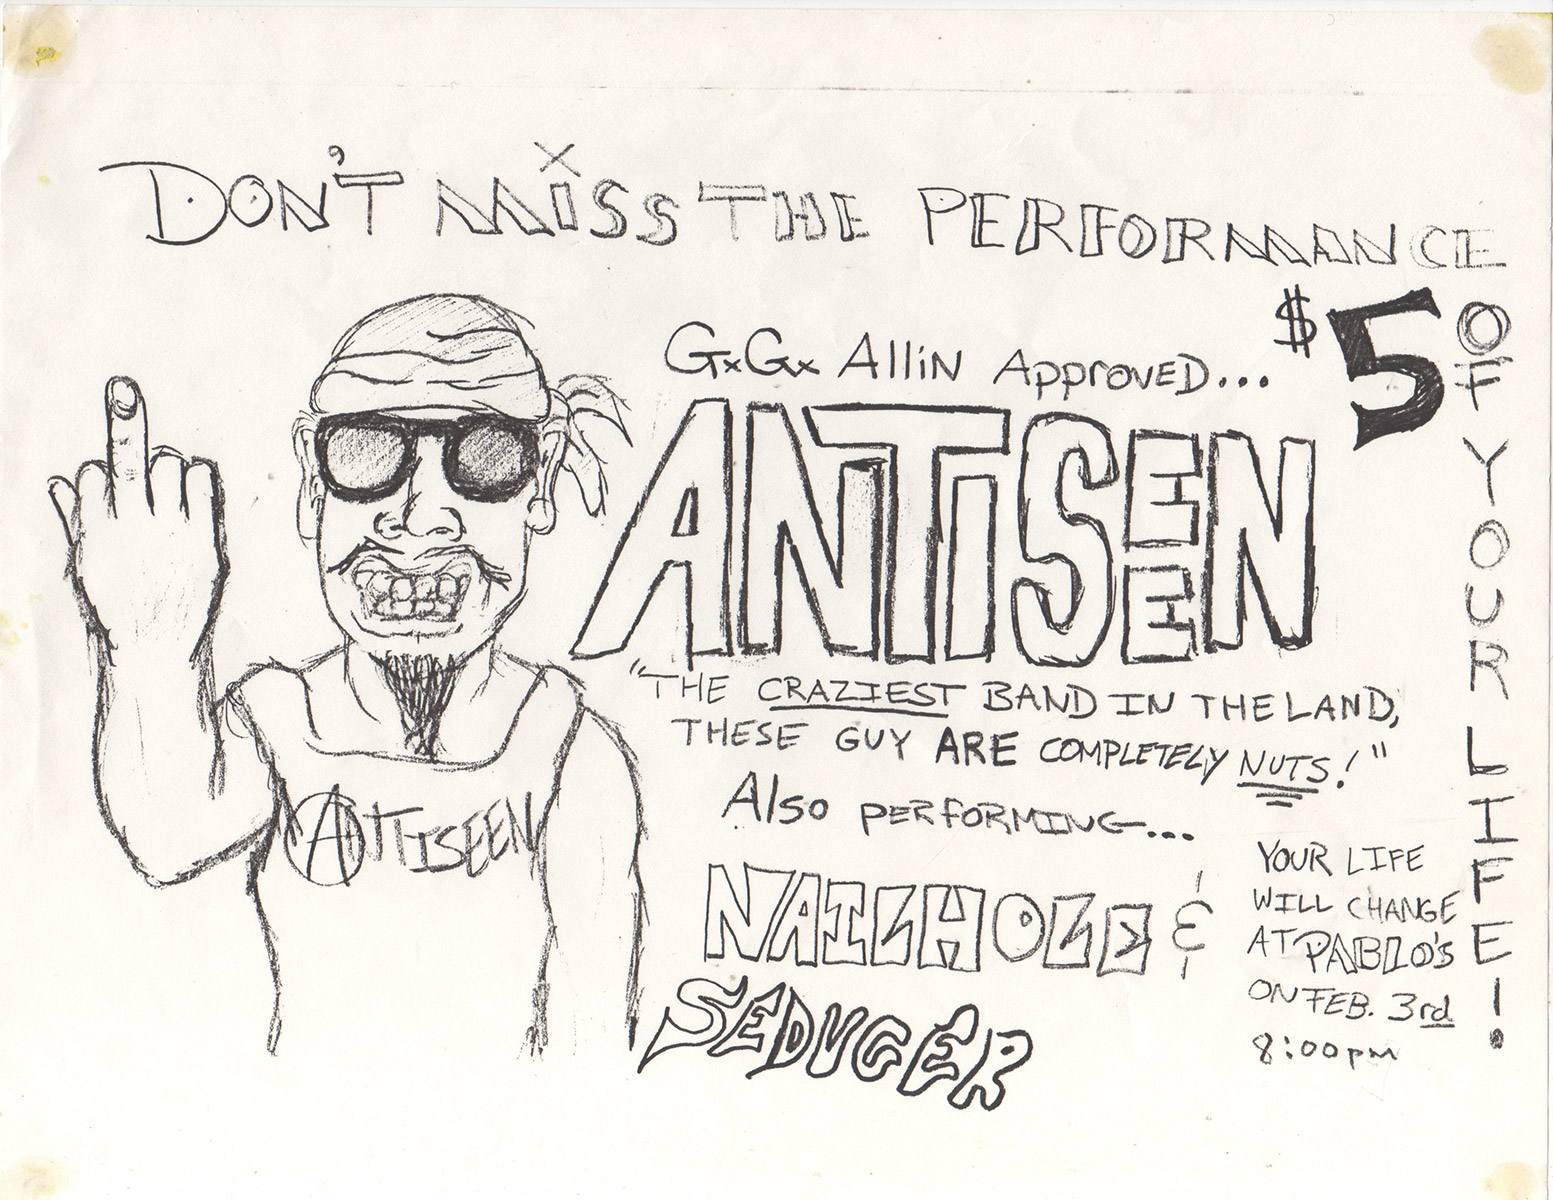 DON'T MISS THE PERFORMANCE
OF YOUR LIFE!
$5
GxGx Allin Approved...
ANTISEEN
"THE CRAZIEST BAND IN THE LAND,
THESE GUY ARE COMPLETELY NUTS!"
Also PERFORMING...
NAILHOLE &
SEDUCER
YOUR LIFE
WILL CHANGE
AT PABLO'S
ON FEB. 3rd
8:00pm
ANTISEEN